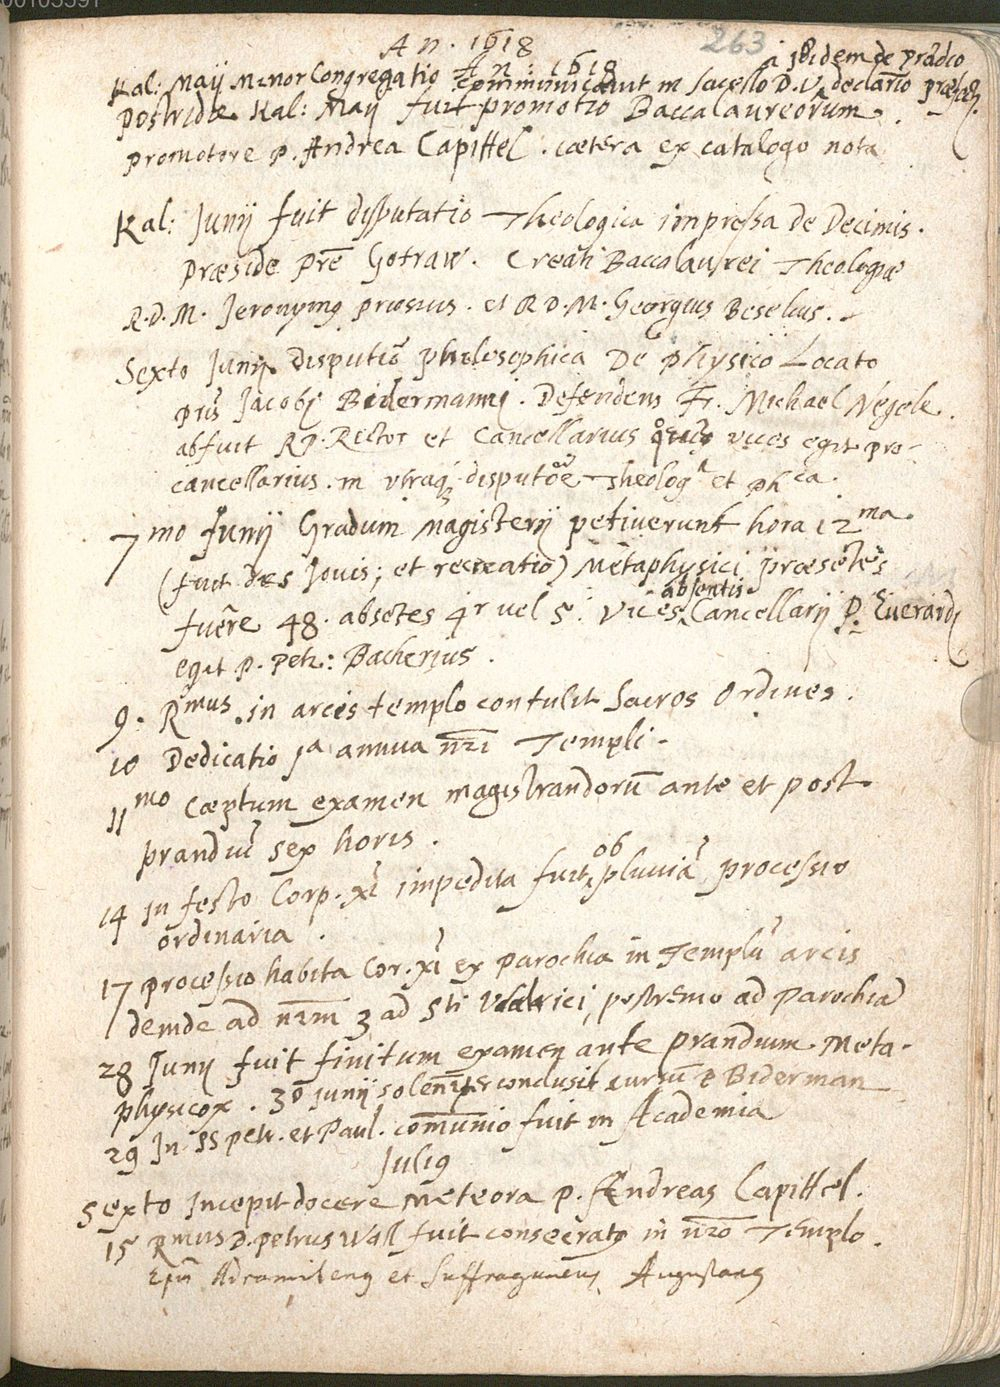 00105591
263
An. 1618
An. 1618
Kal: Maij Minor Congregatio communicavit in sacello D.V. à ibidem de prædio declaratio
Postridie Kal: Maij fuit promotio Baccalaureorum.
promotore P. Andrea Capittel. cætera ex catalogo nota
Kal: Junij fuit disputatio Theologica impressa de Decimis.
Præside Pre Gotraw. Creati Baccalaurei Theologiæ
R.D.M. Jeronymus et R.D.M. Georgius Beselius.
Sexto Junij disputio philosophica De Physico Locato
pris Jacobi Bidermanni. Defendens Fr. Michael Negele.
abfuit R.P. Rector et Cancellarius vices egit pro-
cancellarius. in utraq; disputoe Theolog. et ph ca.
7mo Junij Gradum magisterij petiverunt hora 12ma
(fuit dies Jovis; et recreatio) Metaphysici præsetes
fuere 48. absetes 4r vel 5. Vices absentis Cancellarij P. Everardi
egit P. Petr: Bacherius.
9. Rmus in arcis templo contulit Sacros Ordines.
10 Dedicatio 1a annua nri Templi.
11mo Cæptum examen magistrandoru ante et post
prandiu sex horis.
14 In festo Corp. Xi impedita fuit ob pluvia processio
ordinaria.
17 processio habita Cor. Xi ex parochia in Templu arcis
deinde ad nrm 3 ad Sti Udalrici, postremo ad parochia
28 Junij fuit finitum examen ante prandium Meta-
physicor. 30 Junij solenniter conclusit cursu P Biderman
29 In SS Petr. et Paul. comunio fuit in Academia
Julius
Sexto Incepit docere Meteora P. Andreas Capittel.
15 Rmus D. Petrus Wall fuit consecratus in nro Templo.
Epus Adramitenus et Suffraganeus Augustanus